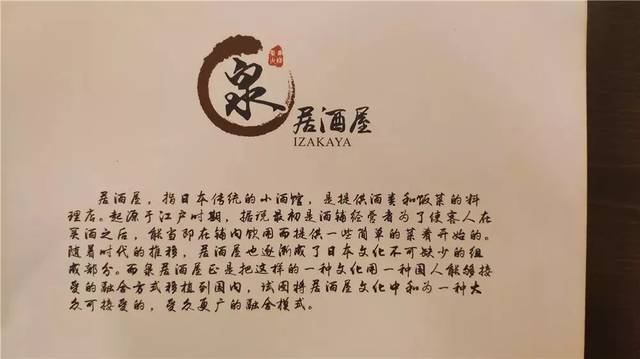 泉
居酒屋
IZAKAYA
居酒屋，指日本传统的小酒馆，是提供酒类和饭菜的料
理店。起源于江户时期，据说最初是酒铺经营者为了使客人在
买酒之后，能当即在铺内饮用而提供一些简单的菜肴开始的。
随着时代的推移，居酒屋也逐渐成了日本文化不可缺少的组
成部分。而泉居酒屋正是把这样的一种文化用一种国人能够接
受的融合方式移植到国内，试图将居酒屋文化中和为一种大
众可接受的，受众更广的融合模式。